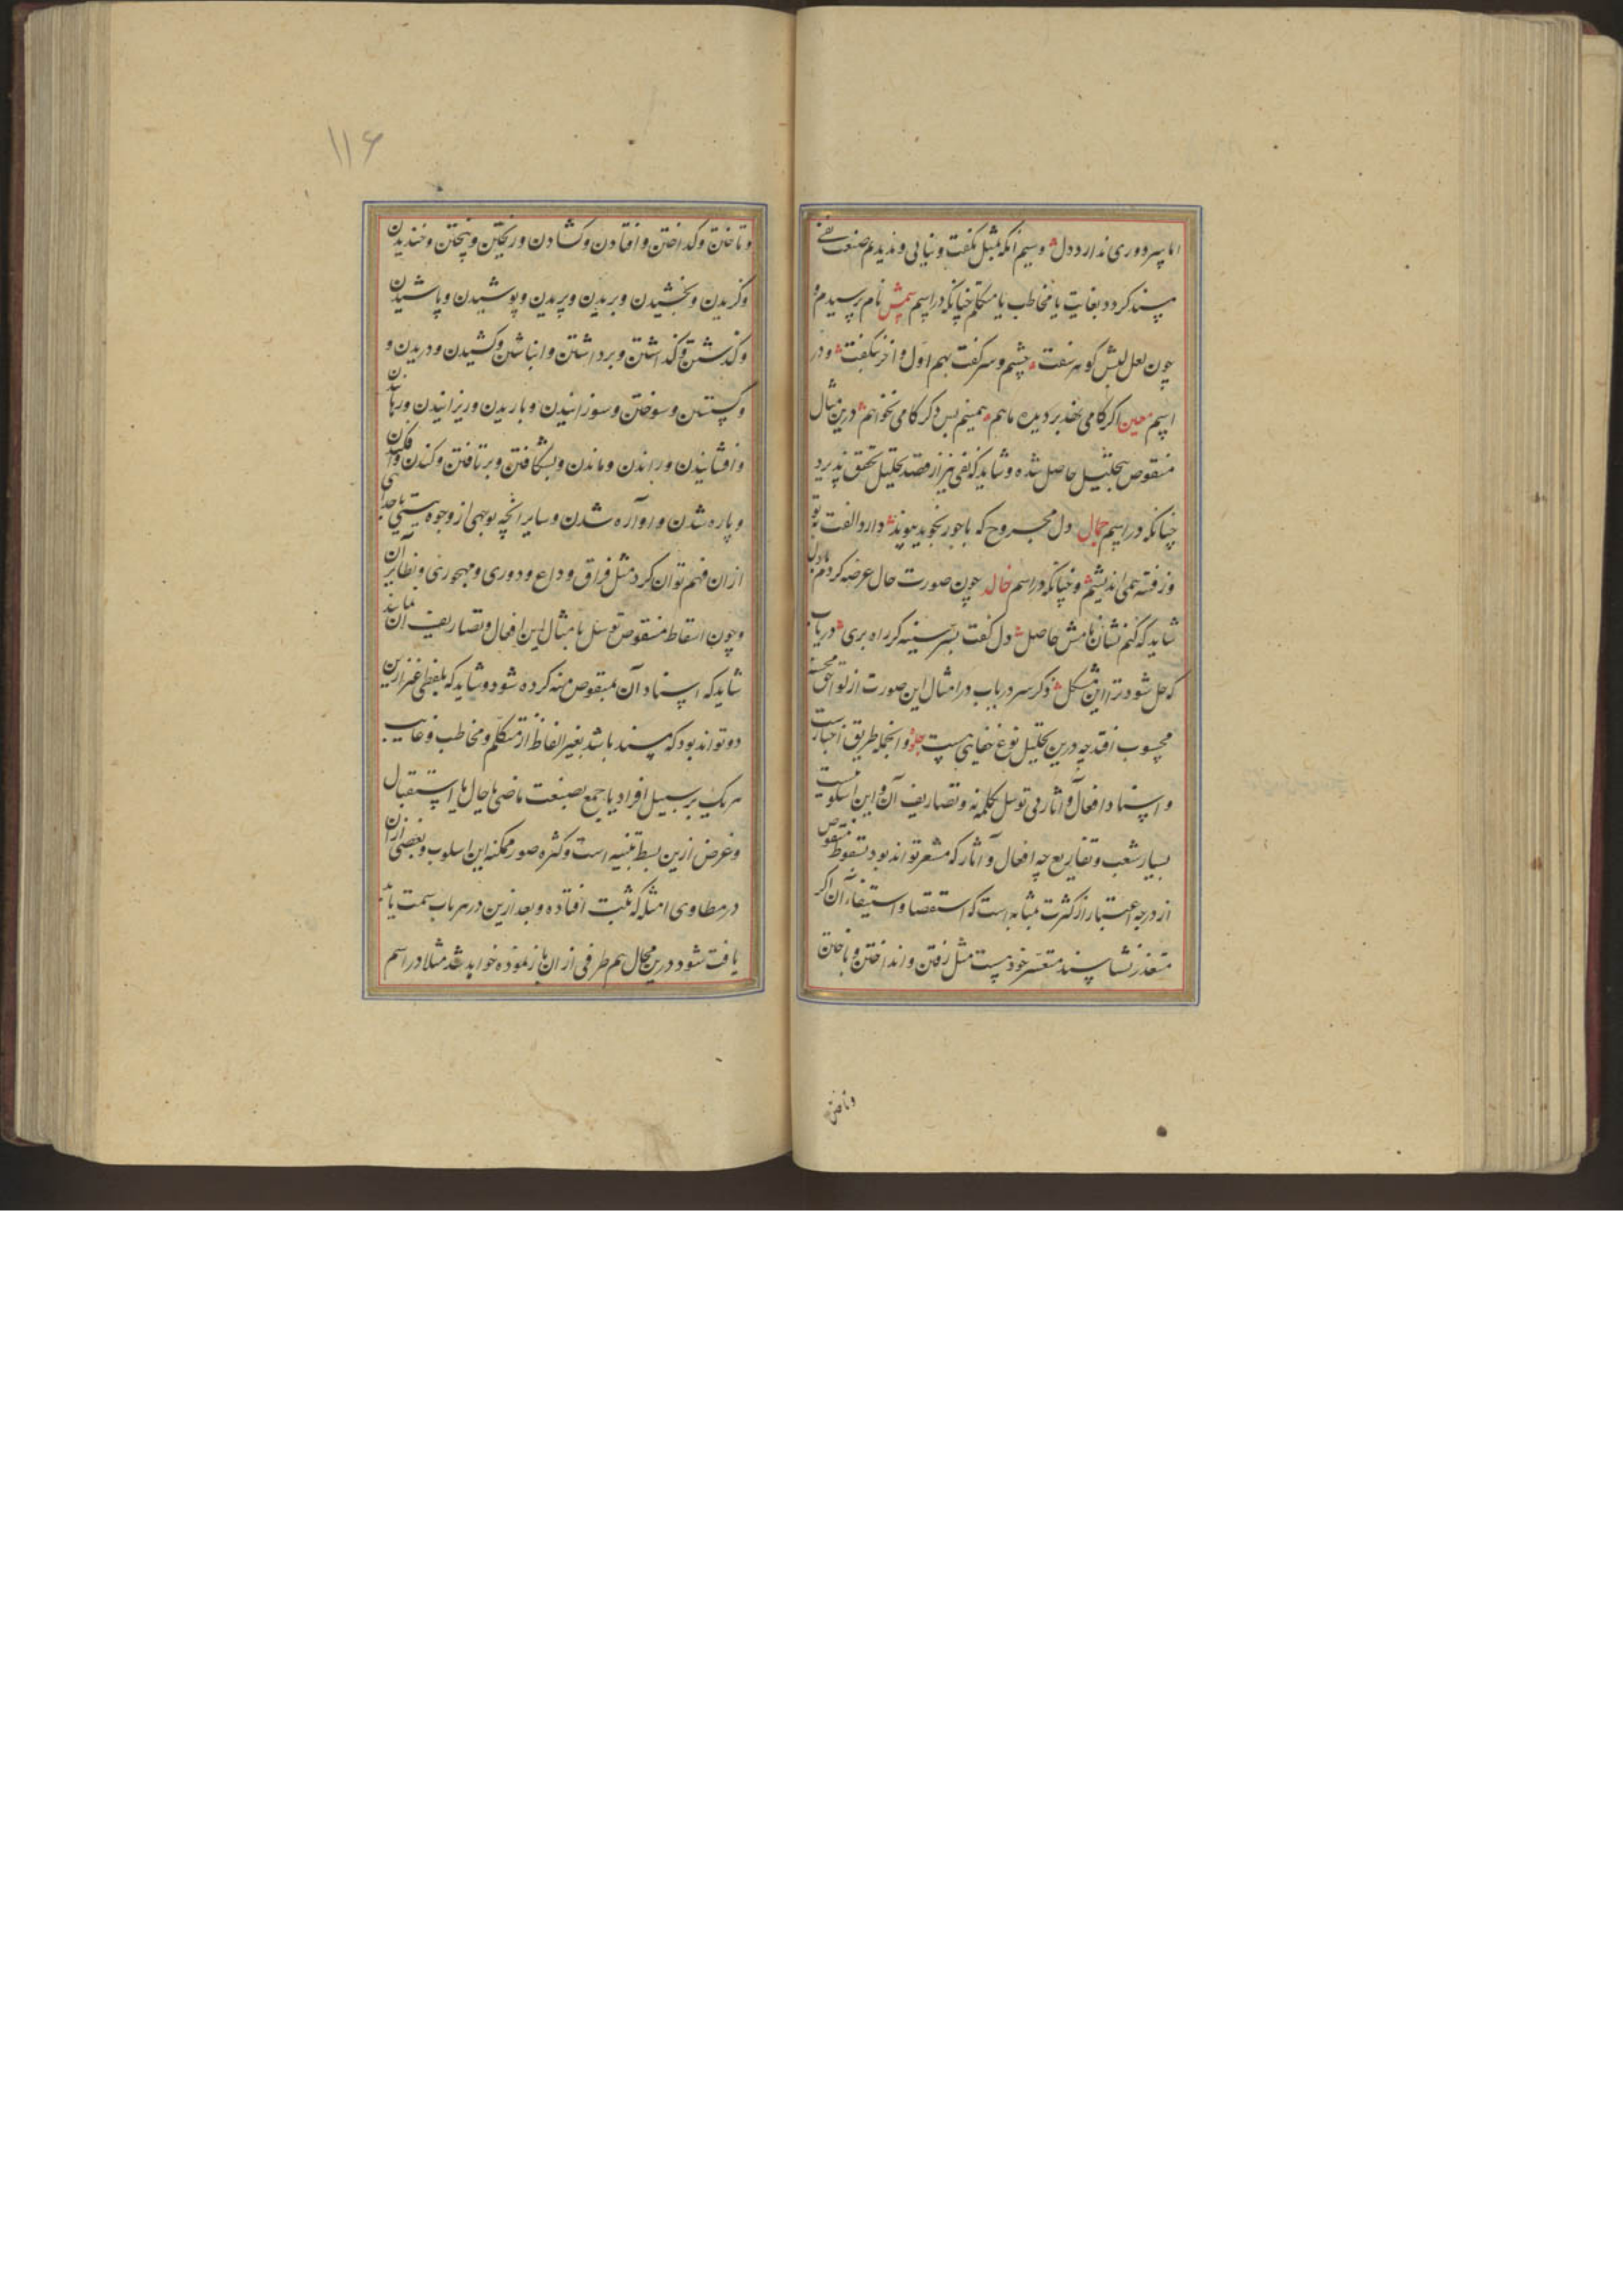 اما سر دوری ندارد دل وسیم آنکه بمثل نگفت و نیابی و ندیدم صنعت نفی
مسند کردد بغایت یا مخاطب یا متکلم چنانکه در اسم شمس نام پرسیدم و
چون لعل لبش کوهر سفت چشم و سر گفت بهم اول و آخر بگفت و در
اسم معین اکر کامی بخذ بر دیده ماهم همینم بس دکر کامی نخواهم درین مثال
منقوص بتحلیل حاصل شده و شاید که نفی نیز از قصد تحلیل تحقق پذیرد
چنانکه در اسم جمال دل مجروح که با جور بخود پیوند دارد الفت تو
وز فتنه همی اندیشم و چنانکه در اسم خالد چون صورت حال عرضه کردم با دل
شاید که کنم نشان نامش حاصل دل گفت بسر سینه کر راه بری دریاب
که حل شود ترا این مشکل ذکر سر دریاب در امثال این صورت از لواحق محسنه
محسوب افتد چه درین تحلیل نوع خفایی هست و از جمله طریق اخبارست
و اسناد افعال و آثار بی توسل بکلمه نه و تصاریف آن و این اسلوبیست
بسیار شعب و تفاریع چه افعال و آثار که مشعر تواند بود بسقوط منقوص
از درجه اعتبار از کثرت بمثابه است که استقصا و استیفاء آن اکر
متعذر نشاسند متعسر خود هست مثل رفتن و انداختن و باختن
وتاختن
۱۱۶
و تاختن و کداختن و افتادن و کشادن و ریختن و پختن و خندیدن
و کریدن و بخشیدن و بریدن و پریدن و پوشیدن و پاشیدن
و کذشتن و کذاشتن و برداشتن و انباشتن و کشیدن و دریدن و
و کسستن و سوختن و سوزانیدن و باریدن و ریزانیدن و رهانیدن
و افشانیدن و راندن و ماندن و بشکافتن و برتافتن و کندن و افکندن
و پاره شدن و آواره شدن و سایر انچه بوجهی از وجوه نیستی یا جدایی
ازان فهم توان کرد مثل فراق و وداع و دوری و مهجوری و نظایر آن
و چون اسقاط منقوص توسل بامثال این افعال و تصاریف آن نمایند
شاید که اسناد آن بمنقوص منه کرده شود و شاید که بلفظی غیر ازین
دو تواند بود که مسند باشد بغیر الفاظ از متکلم و مخاطب و غایب
هر یک بر سبیل افراد یا جمع بصیغت ماضی یا حال یا استقبال
و غرض ازین بسط تنبیه است و کثره صور ممکنه این اسلوب و بعضی ازان
در مطاوی امثله که ثبت افتاده و بعد ازین در هر باب سمت
یافت شود درین مجال هم طرفی از آن باز نموده خواهد شد مثلا در اسم